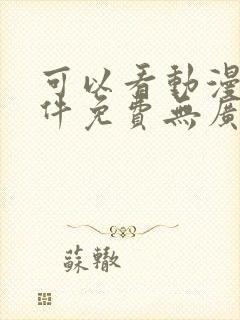 可以看動漫
件免費無廣
蘇轍